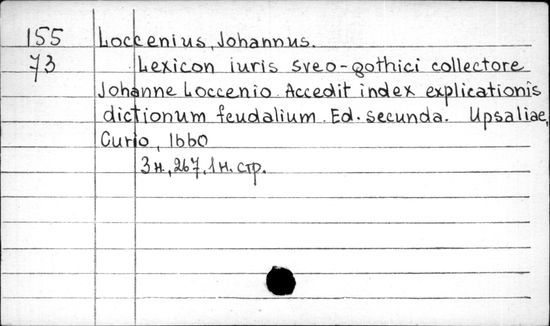 155 Loccenius, Johannus.
73 Lexicon iuris sveo-gothici collectore
Johanne Loccenio. Accedit index explicationis
dictionum feudalium. Ed. secunda. Upsaliae,
Curio, 1660
3 н., 267, 1 н. стр.